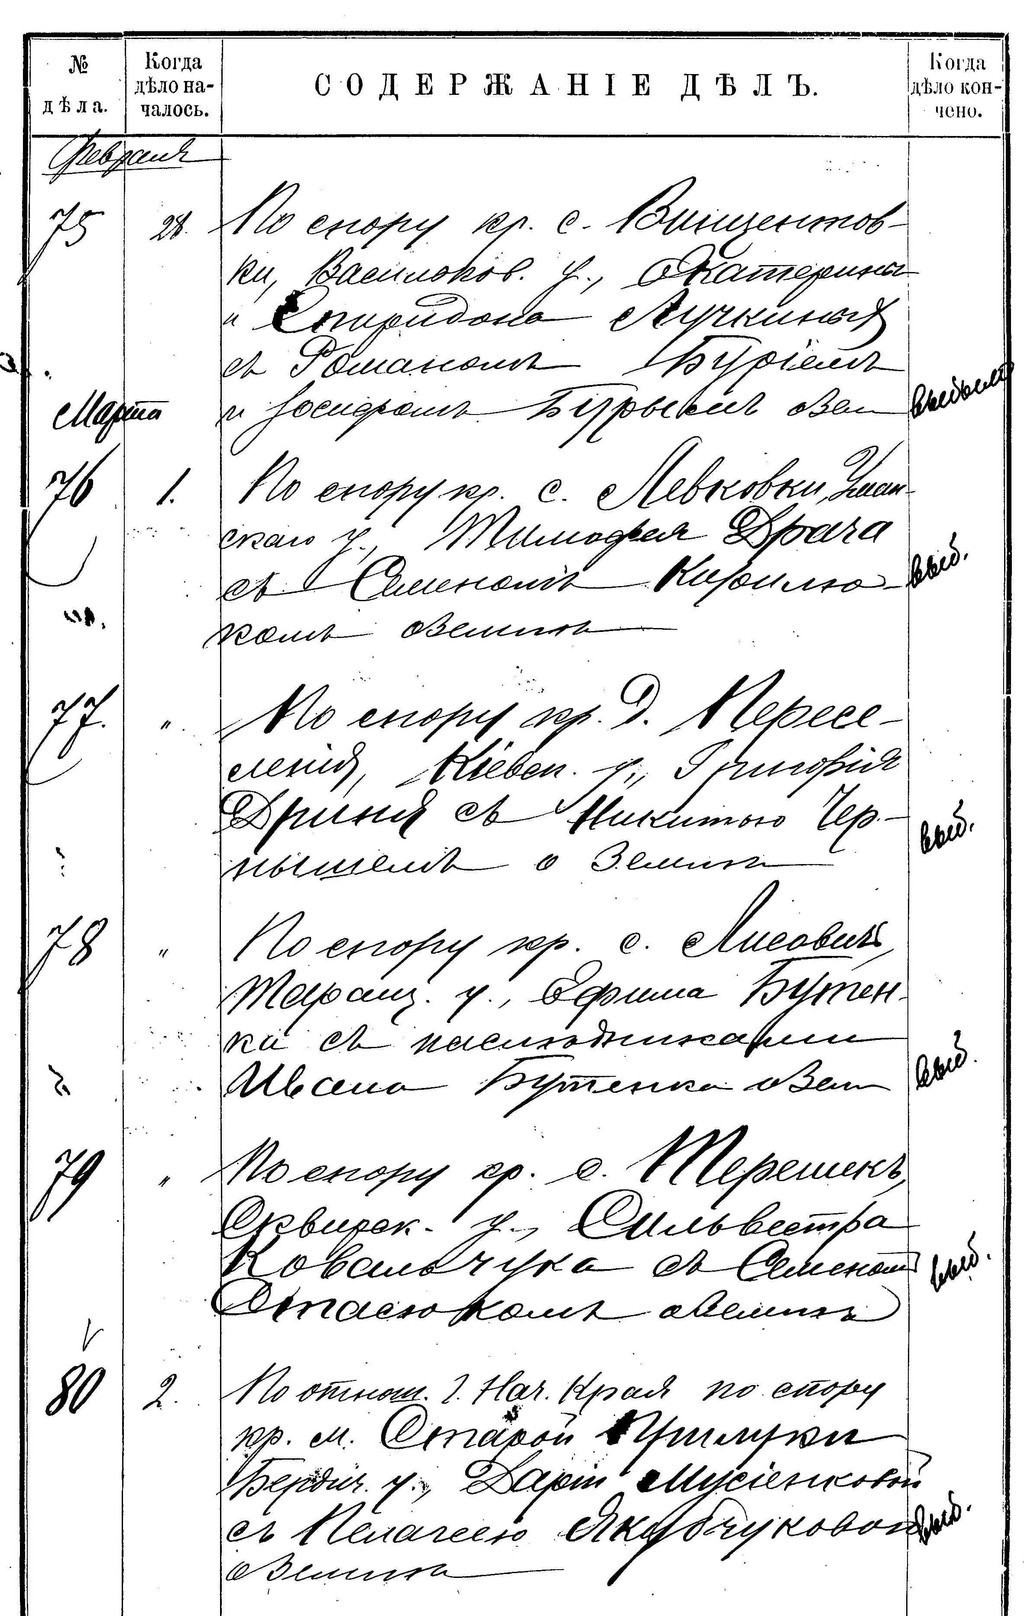 № дѣла.
Когда дѣло началось.
СОДЕРЖАНІЕ ДѢЛЪ.
Когда дѣло кончено.
Февраля
75 28. По спору кр. с. Винцентов-
ки, Васильков. у., Екатерины
и Спиридона Лучкиныхъ
съ Романомъ Буріемъ
Марта
и Іосифомъ Бурыемъ о Зем выбыло
76 1. По спору кр. с. Левковки, Уман-
скаго у., Тимофея Драча
съ Семеномъ Кирилю- выб.
комъ о Землѣ
77. " По спору кр. д. Пересе-
ленія, Кіевск. у., Григорія
Дриня съ Никитою Чер-
нышемъ о Землѣ выб.
78 " По спору кр. с. Лисовичъ,
Таращ. у., Ефима Бутен-
ка съ наслѣдниками
Ивана Бутенка о Зем выб.
79 " По спору кр. с. Терешекъ,
Сквирск. у., Сильвестра
Ковальчука съ Семеномъ выб.
Стасюкомъ о Землѣ
80 2. По отнош. Г. Нач. Края по спору
кр. м. Старой Прилуки
Бердич. у., Даріи Мусіенковой
съ Пелагеею Якубчуковой выб.
о Землѣ